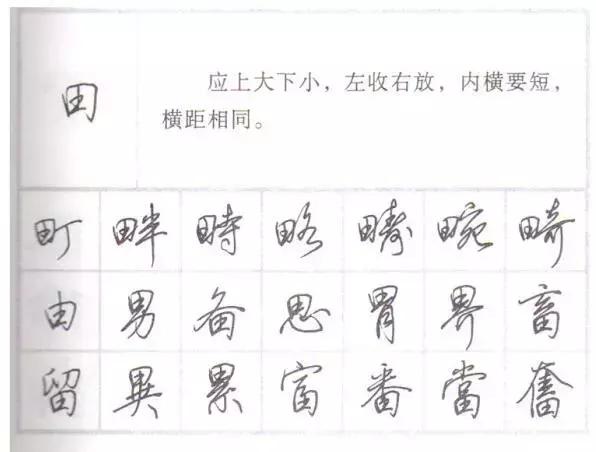 田
应上大下小，左收右放，内横要短，
横距相同。
町 畔 畤 略 疇 畹 畸
由 男 备 思 胃 界 畜
留 異 累 富 番 當 奮